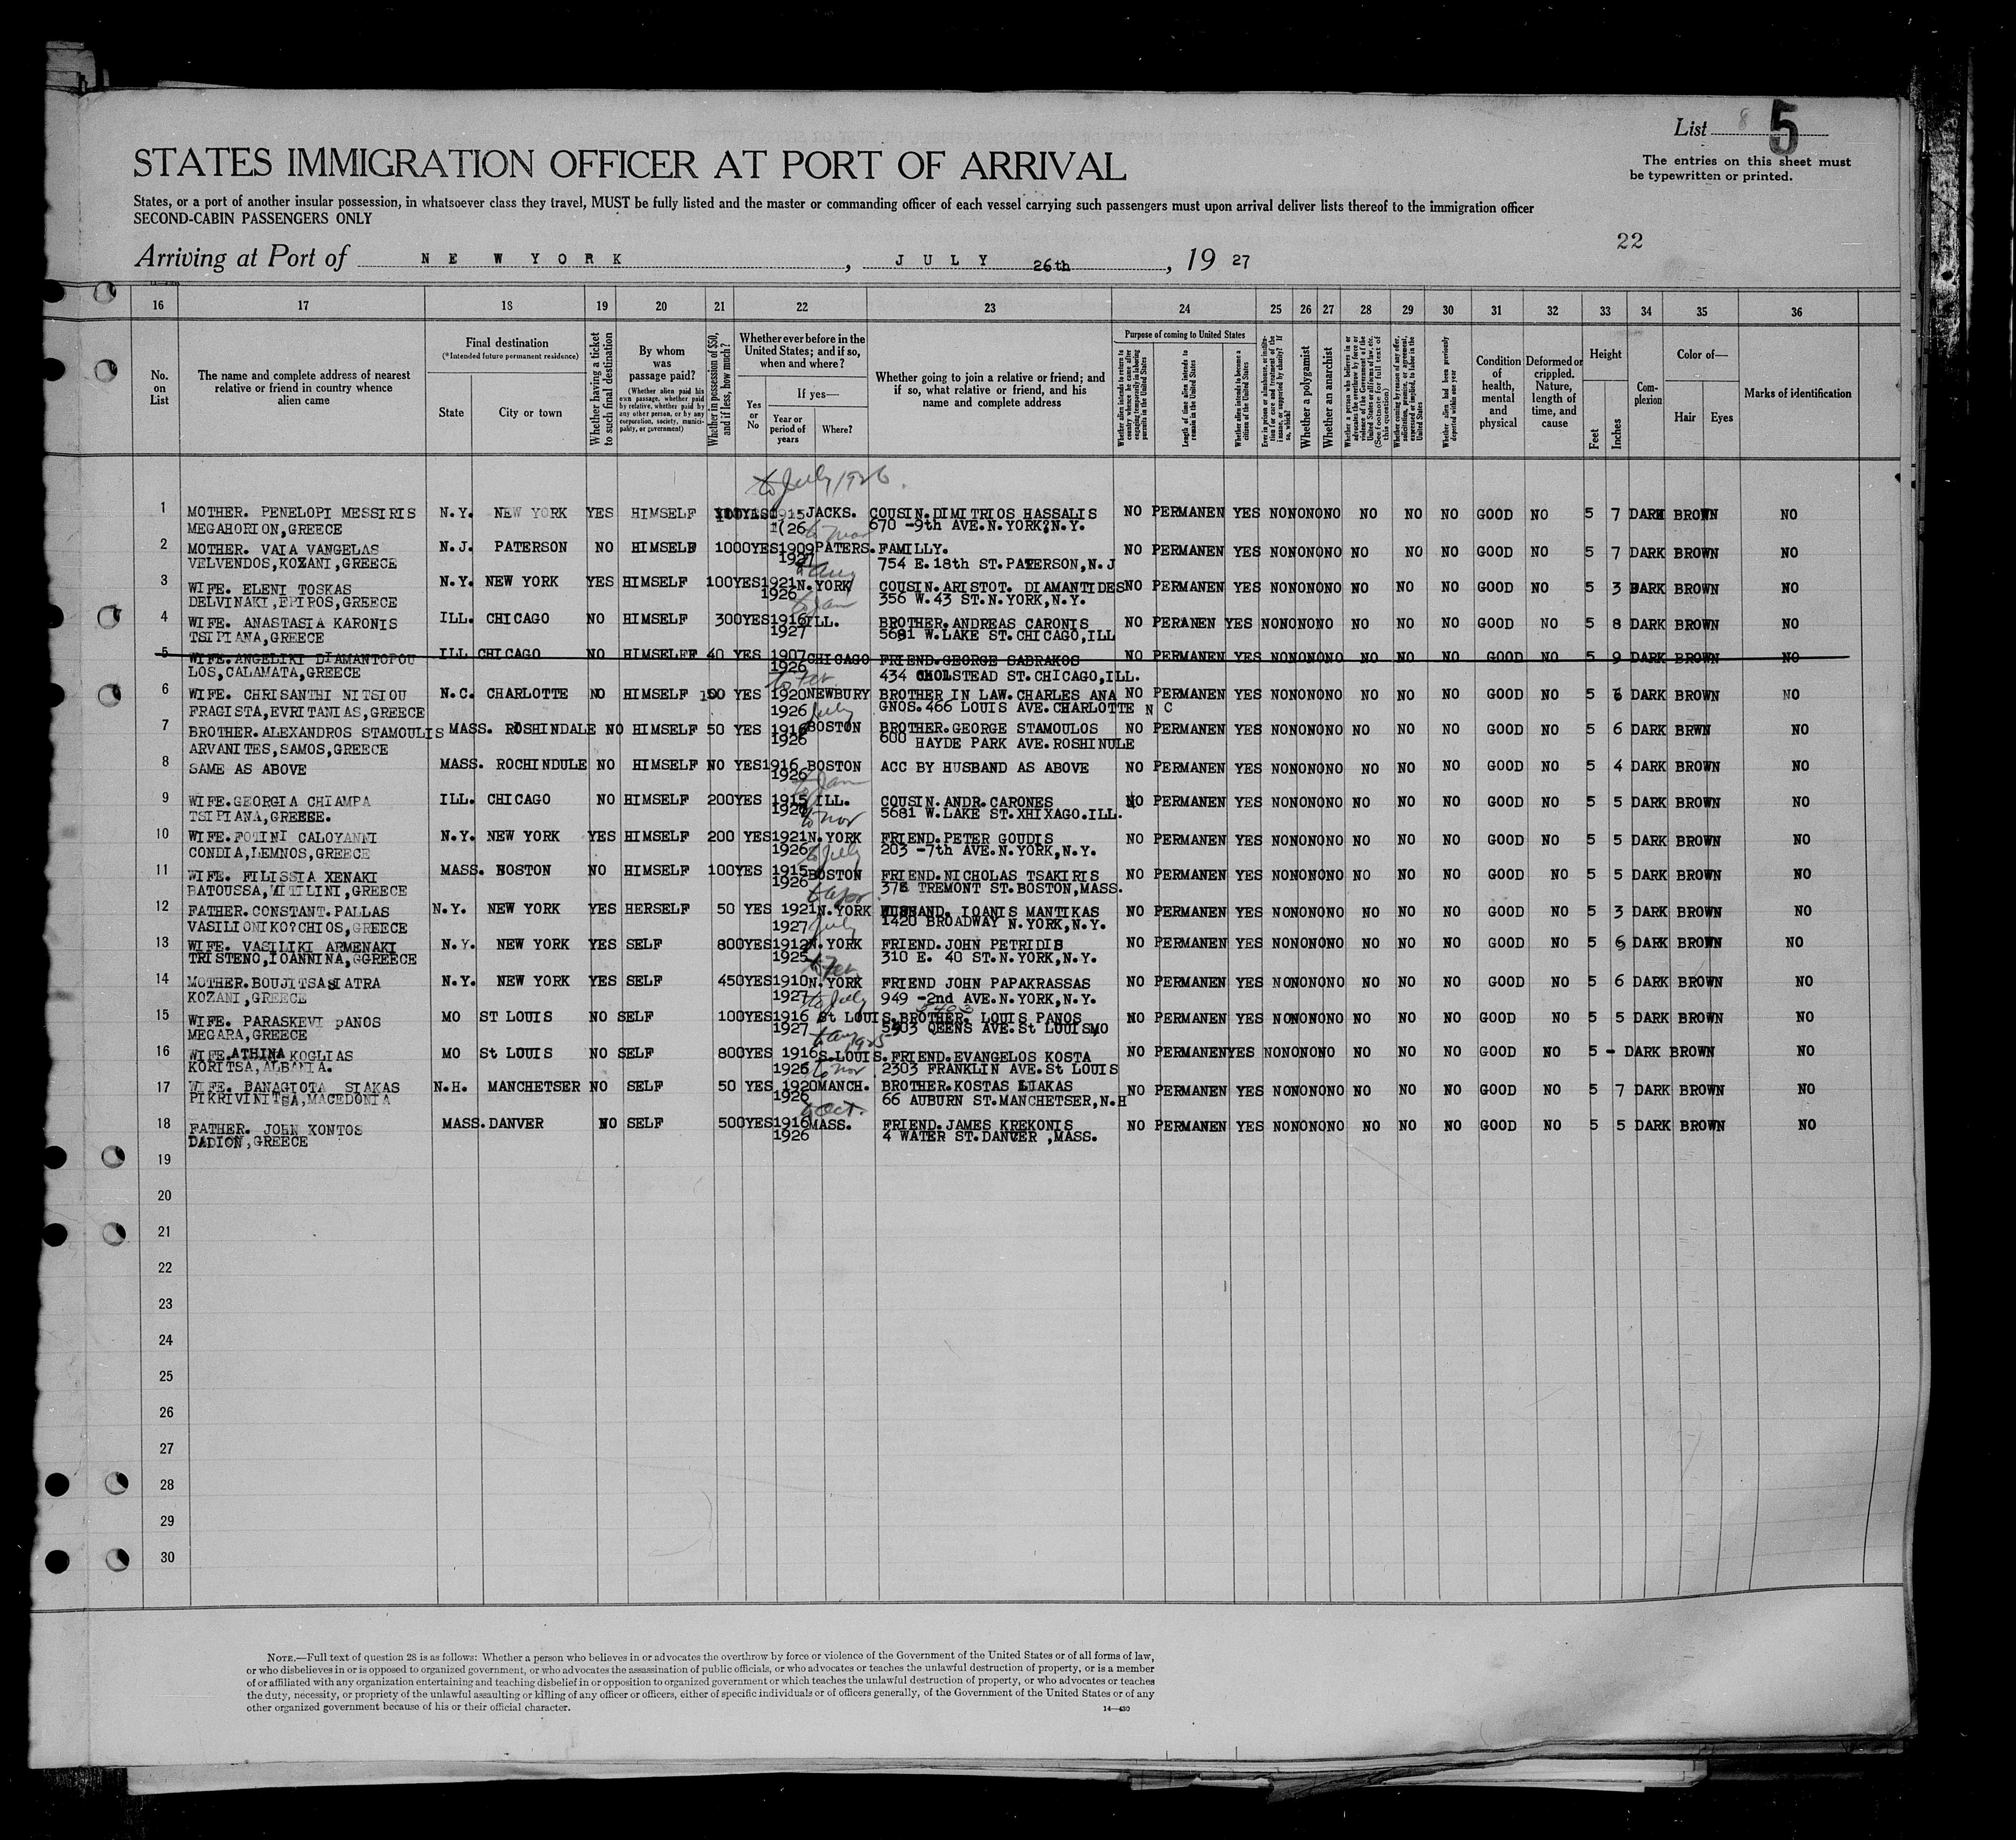 List 8 5
The entries on this sheet must
be typewritten or printed.
STATES IMMIGRATION OFFICER AT PORT OF ARRIVAL
States, or a port of another insular possession, in whatsoever class they travel, MUST be fully listed and the master or commanding officer of each vessel carrying such passengers must upon arrival deliver lists thereof to the immigration officer
SECOND-CABIN PASSENGERS ONLY
22
Arriving at Port of NEW YORK, JULY 26th, 19 27
16 17 18 19 20 21 22 23 24 25 26 27 28 29 30 31 32 33 34 35 36
No. on List
The name and complete address of nearest relative or friend in country whence alien came
Final destination
(*Intended future permanent residence)
State
City or town
Whether having a ticket to such final destination
By whom was passage paid?
(Whether alien paid his own passage, whether paid by relative, whether paid by any other person, or by any corporation, society, municipality, or government)
Whether in possession of $50, and if less, how much?
Whether ever before in the United States; and if so, when and where?
Yes or No
If yes—
Year or period of years
Where?
Whether going to join a relative or friend; and if so, what relative or friend, and his name and complete address
Purpose of coming to United States
Whether alien intends to return to country whence he came after engaging temporarily in laboring pursuits in the United States
Length of time alien intends to remain in the United States
Whether alien intends to become a citizen of the United States
Whether a polygamist
Whether an anarchist
Whether alien had been previously deported within one year
Condition of health, mental and physical
Deformed or crippled. Nature, length of time, and cause
Height
Feet
Inches
Complexion
Color of—
Hair
Eyes
Marks of identification
to July 1926.
1 MOTHER. PENELOPI MESSIRIS N.Y. NEW YORK YES HIMSELF 100 YES 1915 JACKS. COUSIN.DIMITRIOS HASSALIS NO PERMANEN YES NO NO NO NO NO NO GOOD NO 5 7 DARK BROWN NO
MEGAHORION,GREECE 26 670 -9th AVE.N.YORK,N.Y.
to Nov
2 MOTHER. VAIA VANGELAS N.J. PATERSON NO HIMSELF 100 YES 1909 PATERS. FAMILLY. NO PERMANEN YES NO NO NO NO NO NO GOOD NO 5 7 DARK BROWN NO
VELVENDOS,KOZANI,GREECE 1927 754 E.18th ST.PATERSON,N.J
to Aug
3 WIFE. ELENI TOSKAS N.Y. NEW YORK YES HIMSELF 100 YES 1921 N.YORK COUSIN.ARISTOT. DIAMANTIDES NO PERMANEN YES NO NO NO NO NO NO GOOD NO 5 3 DARK BROWN NO
DELVINAKI,EPIROS,GREECE 1926 356 W.43 ST.N.YORK,N.Y.
to Jan
4 WIFE. ANASTASIA KARONIS ILL. CHICAGO NO HIMSELF 300 YES 1916 ILL. BROTHER.ANDREAS CARONIS NO PERANEN YES NO NO NO NO NO NO GOOD NO 5 8 DARK BROWN NO
TSIPIANA,GREECE 1927 5681 W.LAKE ST.CHICAGO,ILL
5 WIFE.ANGELIKI DIAMANTOPOU ILL CHICAGO NO HIMSELF 40 YES 1907 CHICAGO FRIEND.GEORGE SABRAKOS NO PERMANEN YES NO NO NO NO NO NO GOOD NO 5 9 DARK BROWN NO
LOS,CALAMATA,GREECE 1926 434 HOLSTEAD ST.CHICAGO,ILL.
to Fer.
6 WIFE. CHRISANTHI NITSIOU N.C. CHARLOTTE NO HIMSELF 100 YES 1920 NEWBURY BROTHER IN LAW.CHARLES ANA NO PERMANEN YES NO NO NO NO NO NO GOOD NO 5 6 DARK BROWN NO
FRAGISTA,EVRITANIAS,GREECE 1926 GNOS.466 LOUIS AVE.CHARLOTTE N C
July
7 BROTHER.ALEXANDROS STAMOULIS MASS. ROSHINDALE NO HIMSELF 50 YES 1916 BOSTON BROTHER.GEORGE STAMOULOS NO PERMANEN YES NO NO NO NO NO NO GOOD NO 5 6 DARK BRWN NO
ARVANITES,SAMOS,GREECE 1926 600 HAYDE PARK AVE.ROSHINULE
8 SAME AS ABOVE MASS. ROCHINDULE NO HIMSELF NO YES 1916 BOSTON ACC BY HUSBAND AS ABOVE NO PERMANEN YES NO NO NO NO NO NO GOOD NO 5 4 DARK BROWN NO
1926
to Jan
9 WIFE.GEORGIA CHIAMPA ILL. CHICAGO NO HIMSELF 200 YES 1915 ILL. COUSIN.ANDR.CARONES NO PERMANEN YES NO NO NO NO NO NO GOOD NO 5 5 DARK BROWN NO
TSIPIANA,GREEEE. 1927 5681 W.LAKE ST.XHIXAGO.ILL.
to Nov
10 WIFE.FOTINI CALOYANNI N.Y. NEW YORK YES HIMSELF 200 YES 1921 N.YORK FRIEND.PETER GOUDIS NO PERMANEN YES NO NO NO NO NO NO GOOD NO 5 5 DARK BROWN NO
CONDIA,LEMNOS,GREECE 1926 203 -7th AVE.N.YORK,N.Y.
to July
11 WIFE. FILISSIA XENAKI MASS. BOSTON NO HIMSELF 100 YES 1915 BOSTON FRIEND.NICHOLAS TSAKIRIS NO PERMANEN YES NO NO NO NO NO NO GOOD NO 5 5 DARK BROWN NO
BATOUSSA,MITILINI,GREECE 1926 378 TREMONT ST.BOSTON,MASS.
to Apr.
12 FATHER.CONSTANT.PALLAS N.Y. NEW YORK YES HERSELF 50 YES 1921 N.YORK HUSBAND. IOANIS MANTIKAS NO PERMANEN YES NO NO NO NO NO NO GOOD NO 5 3 DARK BROWN NO
VASILIONIKO?CHIOS,GREECE 1927 1420 BROADWAY N.YORK,N.Y.
July
13 WIFE. VASILIKI ARMENAKI N.Y. NEW YORK YES SELF 800 YES 1912 N.YORK FRIEND.JOHN PETRIDIS NO PERMANEN YES NO NO NO NO NO NO GOOD NO 5 6 DARK BROWN NO
TRISTENO,IOANNINA,GGREECE 1925 310 E. 40 ST.N.YORK,N.Y.
to Fer
14 MOTHER.BOUJITSASIATRA N.Y. NEW YORK YES SELF 450 YES 1910 N.YORK FRIEND JOHN PAPAKRASSAS NO PERMANEN YES NO NO NO NO NO NO GOOD NO 5 6 DARK BROWN NO
KOZANI,GREECE 1927 949 -2nd AVE.N.YORK,N.Y.
to July
15 WIFE. PARASKEVI pANOS MO ST LOUIS NO SELF 100 YES 1916 St LOUIS. BROTHER. LOUIS PANOS NO PERMANEN YES NO NO NO NO NO NO GOOD NO 5 5 DARK BROWN NO
MEGARA,GREECE 1927 5303 QEENS AVE.St LOUIS MO
to Aug 1925
16 WIFE.ATHINA KOGLIAS MO St LOUIS NO SELF 800 YES 1916 S.LOUIS. FRIEND.EVANGELOS KOSTA NO PERMANEN YES NO NO NO NO NO NO GOOD NO 5 - DARK BROWN NO
KORITSA,ALBANIA. 1926 2303 FRANKLIN AVE.St LOUIS
to Nov
17 WIFE. BANAGIOTA SIAKAS N.H. MANCHETSER NO SELF 50 YES 1920 MANCH. BROTHER.KOSTAS LIAKAS NO PERMANEN YES NO NO NO NO NO NO GOOD NO 5 7 DARK BROWN NO
PIKRIVINITSA,MACEDONIA 1926 66 AUBURN ST.MANCHETSER,N.H
to Oct.
18 FATHER. JOHN XONTOS MASS. DANVER NO SELF 500 YES 1916 MASS. FRIEND.JAMES KREKONIS NO PERMANEN YES NO NO NO NO NO NO GOOD NO 5 5 DARK BROWN NO
DADION,GREECE 1926 4 WATER ST.DANVER ,MASS.
19
20
21
22
23
24
25
26
27
28
29
30
NOTE.—Full text of question 28 is as follows: Whether a person who believes in or advocates the overthrow by force or violence of the Government of the United States or of all forms of law,
or who disbelieves in or is opposed to organized government, or who advocates the assassination of public officials, or who advocates or teaches the unlawful destruction of property, or is a member
of or affiliated with any organization entertaining and teaching disbelief in or opposition to organized government or which teaches the unlawful destruction of property, or who advocates or teaches
the duty, necessity, or propriety of the unlawful assaulting or killing of any officer or officers, either of specific individuals or of officers generally, of the Government of the United States or of any
other organized government because of his or their official character.
14—430